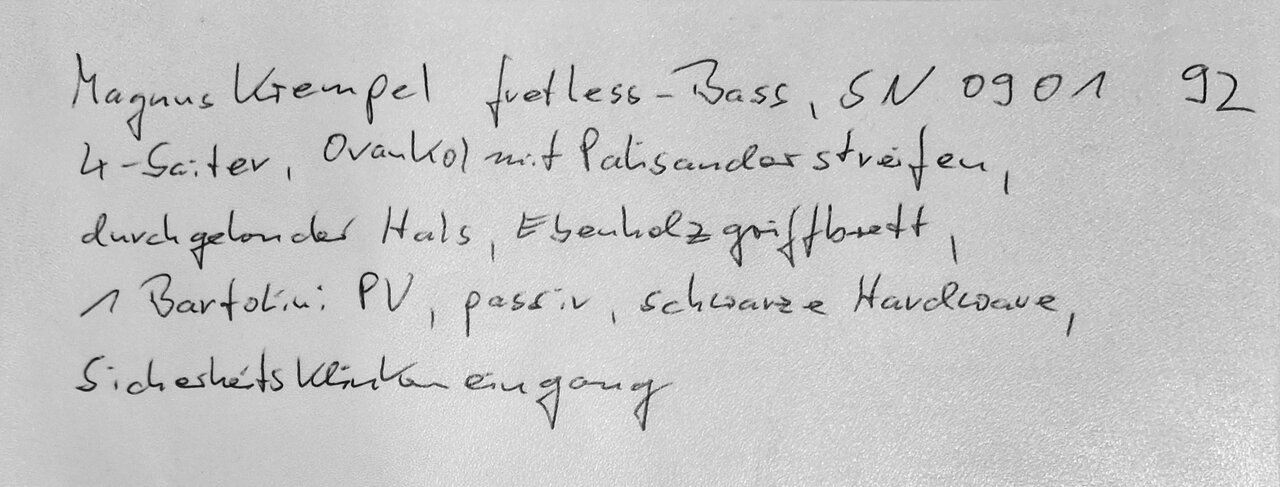 Magnus Krempel fretless-Bass, SN 0901 92
4-Saiter, Ovankol mit Palisanderstreifen,
durchgehender Hals, Ebenholzgriffbrett,
1 Bartolini PU, passiv, schwarze Hardware,
Sicherheitsklinkeneingang